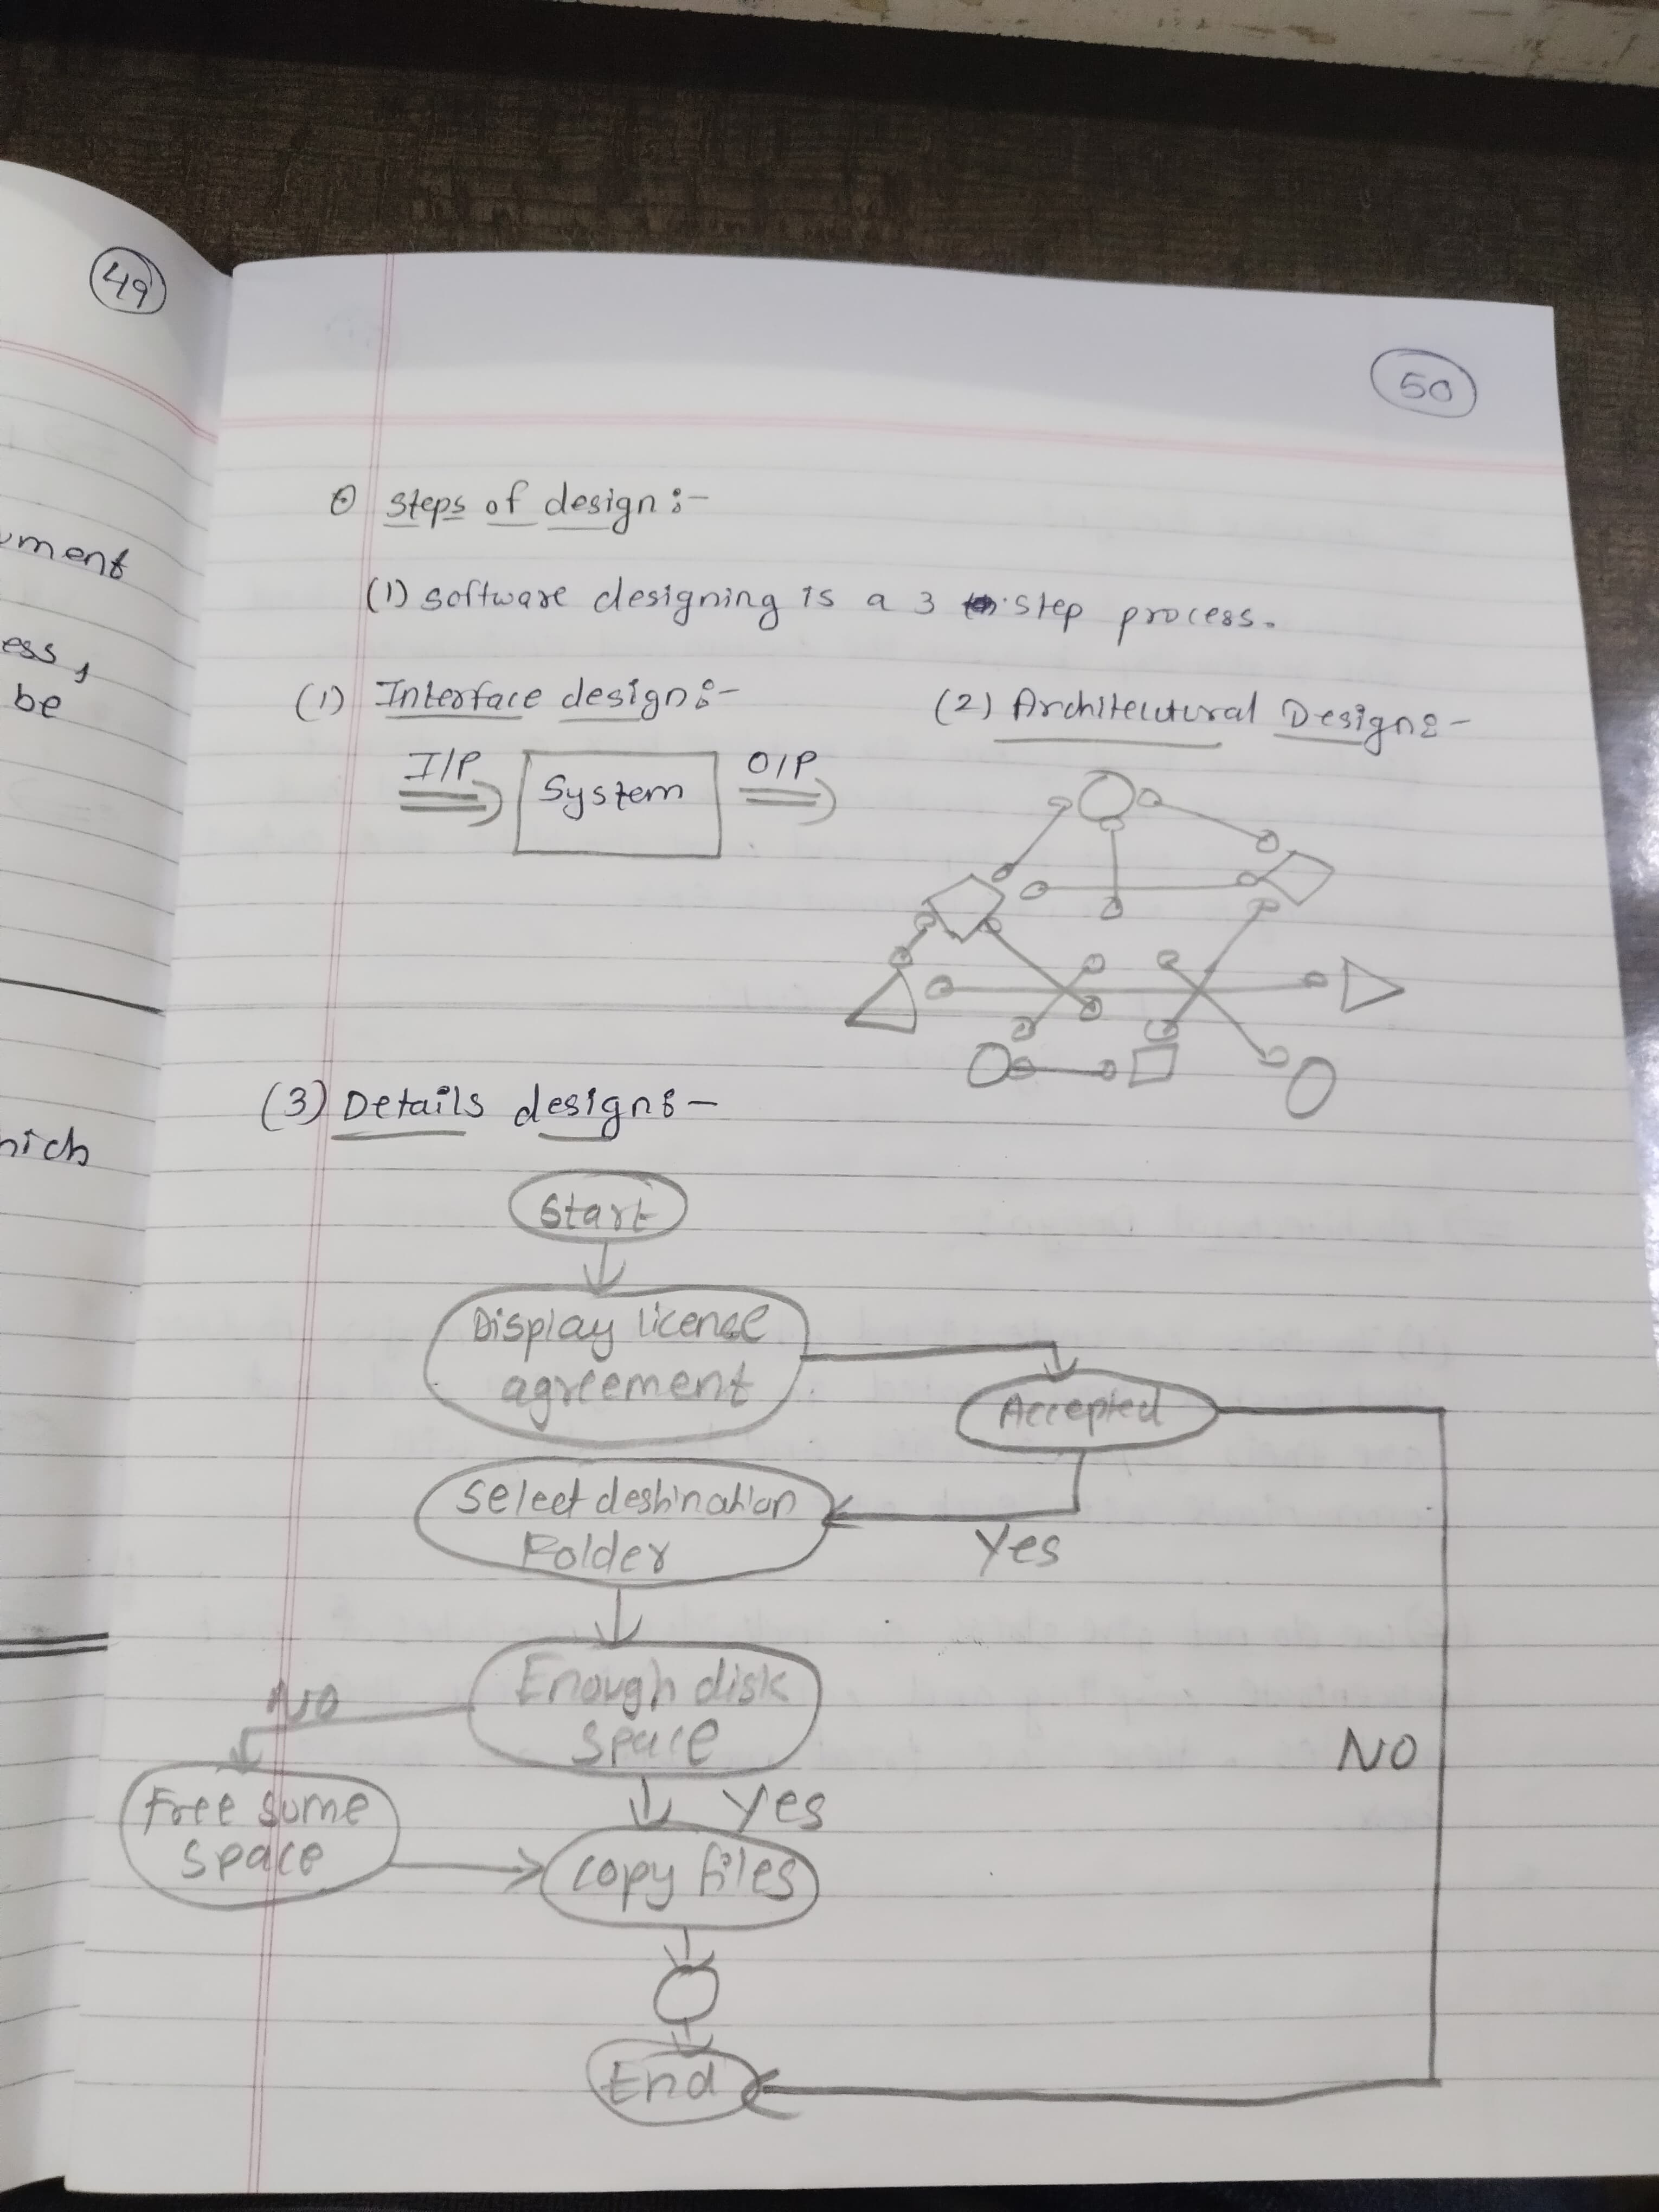 49
ument
ess,
be
hich
50
steps of design :-
(1) software designing is a 3 step process.
(1) Interface design :-
I/P
System
O/P
(2) Architeutural Design :-
(3) Details design :-
Start
Display license
agreement
Accepted
Select destination
Folder
Yes
Enough disk
space
NO
NO
Free some
space
Yes
copy files
End